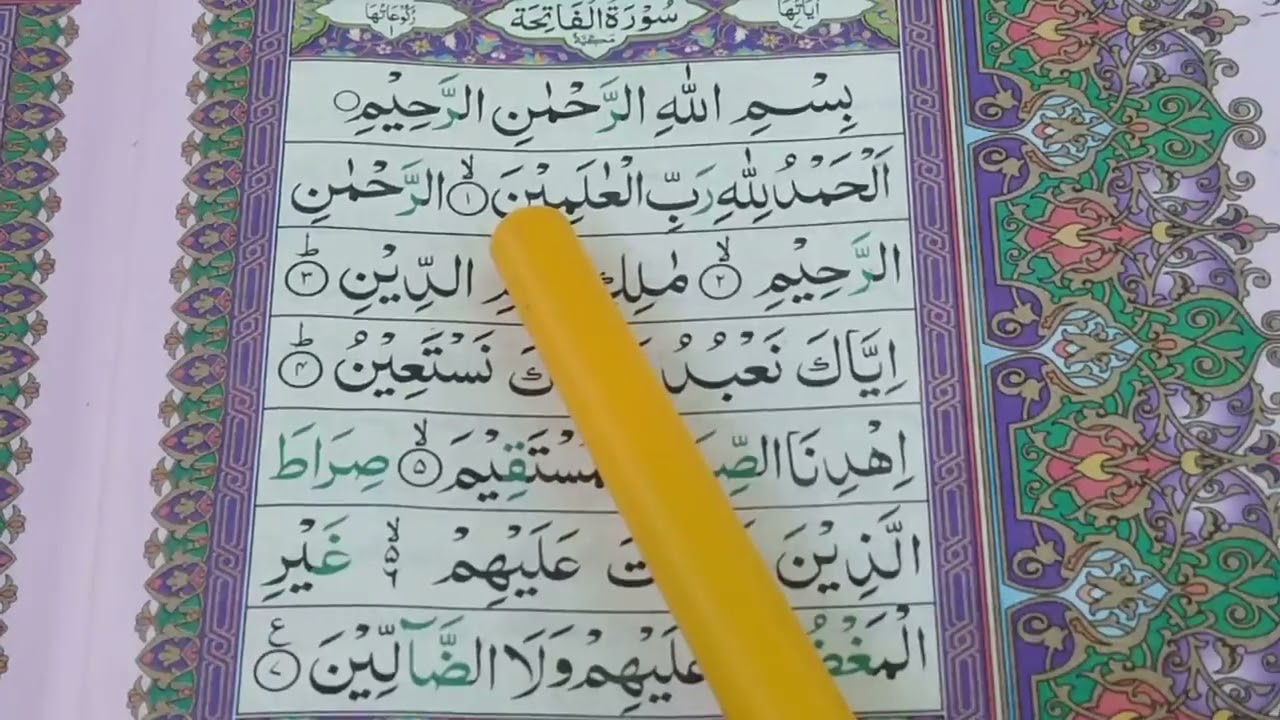 رُكُوْعَاتُهَا ١ سُوْرَةُ الْفَاتِحَةِ مَكِّيَّةٌ اٰيَاتُهَا ٧
بِسْمِ اللّٰهِ الرَّحْمٰنِ الرَّحِيْمِ
اَلْحَمْدُ لِلّٰهِ رَبِّ الْعٰلَمِيْنَ ۙ﴿١﴾ الرَّحْمٰنِ
الرَّحِيْمِ ۙ﴿٢﴾ مٰلِكِ الدِّيْنِ ؕ﴿٣﴾
اِيَّاكَ نَعْبُدُ نَسْتَعِيْنُ ؕ﴿٤﴾
اِهْدِنَا الْمُسْتَقِيْمَ ۙ﴿٥﴾ صِرَاطَ
الَّذِيْنَ عَلَيْهِمْ ۙ٦ غَيْرِ
عَلَيْهِمْ وَلَا الضَّآلِّيْنَ ﴿٧﴾ ع